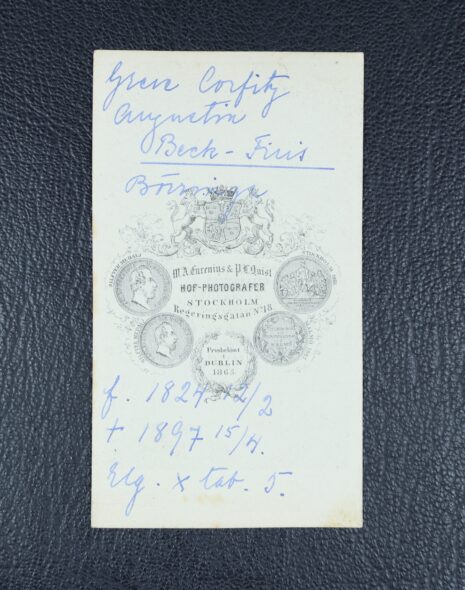 Greve Corfitz
Augustin
Beck-Friis
Börringe
W.A. Eurenius & P.L. Quist
HOF-PHOTOGRAFER
STOCKHOLM
Regeringsgatan No 18
Prisbelönt
i
DUBLIN
1865
f. 1824 12/2
† 1897 15/4.
Elg. x tab. 5.